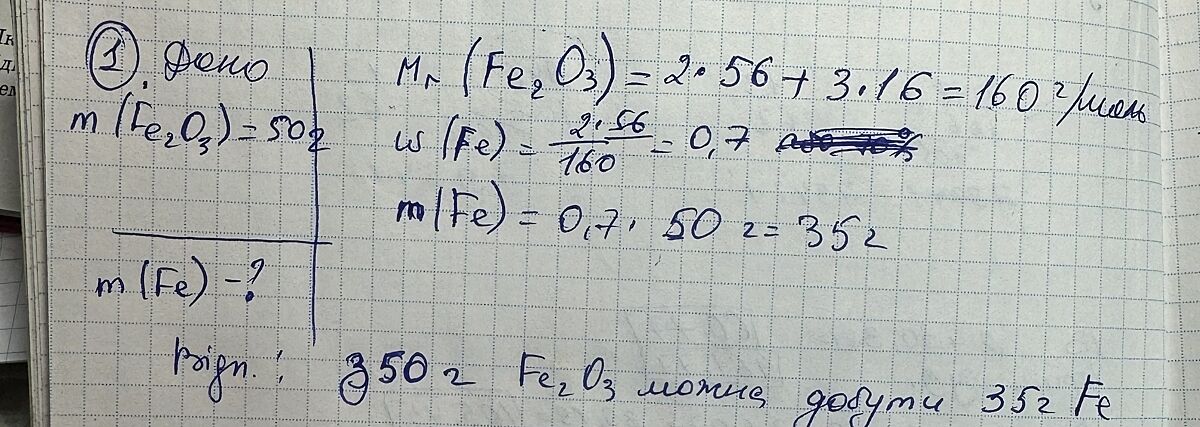 1. Дано
m (Fe₂O₃) = 50 г
m (Fe) - ?
Mr (Fe₂O₃) = 2·56 + 3·16 = 160 г/моль
w (Fe) = 2·56/160 = 0,7
m (Fe) = 0,7 · 50 г = 35 г
Відп.: З 50 г Fe₂O₃ можна добути 35 г Fe